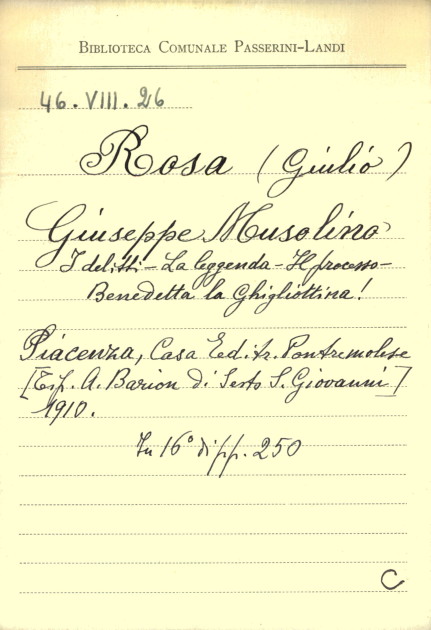 BIBLIOTECA COMUNALE PASSERINI-LANDI
46. VIII. 26
Rosa (Giulio)
Giuseppe Musolino
I delitti - La leggenda - Il processo -
Benedetta la Ghigliottina!
Piacenza, Casa Editr. Pontremolese
[Tip. A. Barion di Sesto S. Giovanni]
1910.
In 16° di pp. 250
C